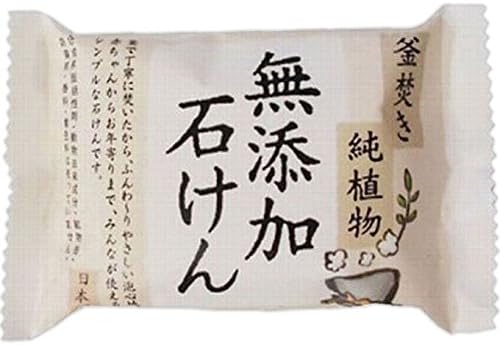 釜焚き
純植物
無添加
石けん
釜で丁寧に焚いたから、ふんわりやさしい泡心地
赤ちゃんからお年寄りまで、みんなが使える
シンプルな石けんです。
日本